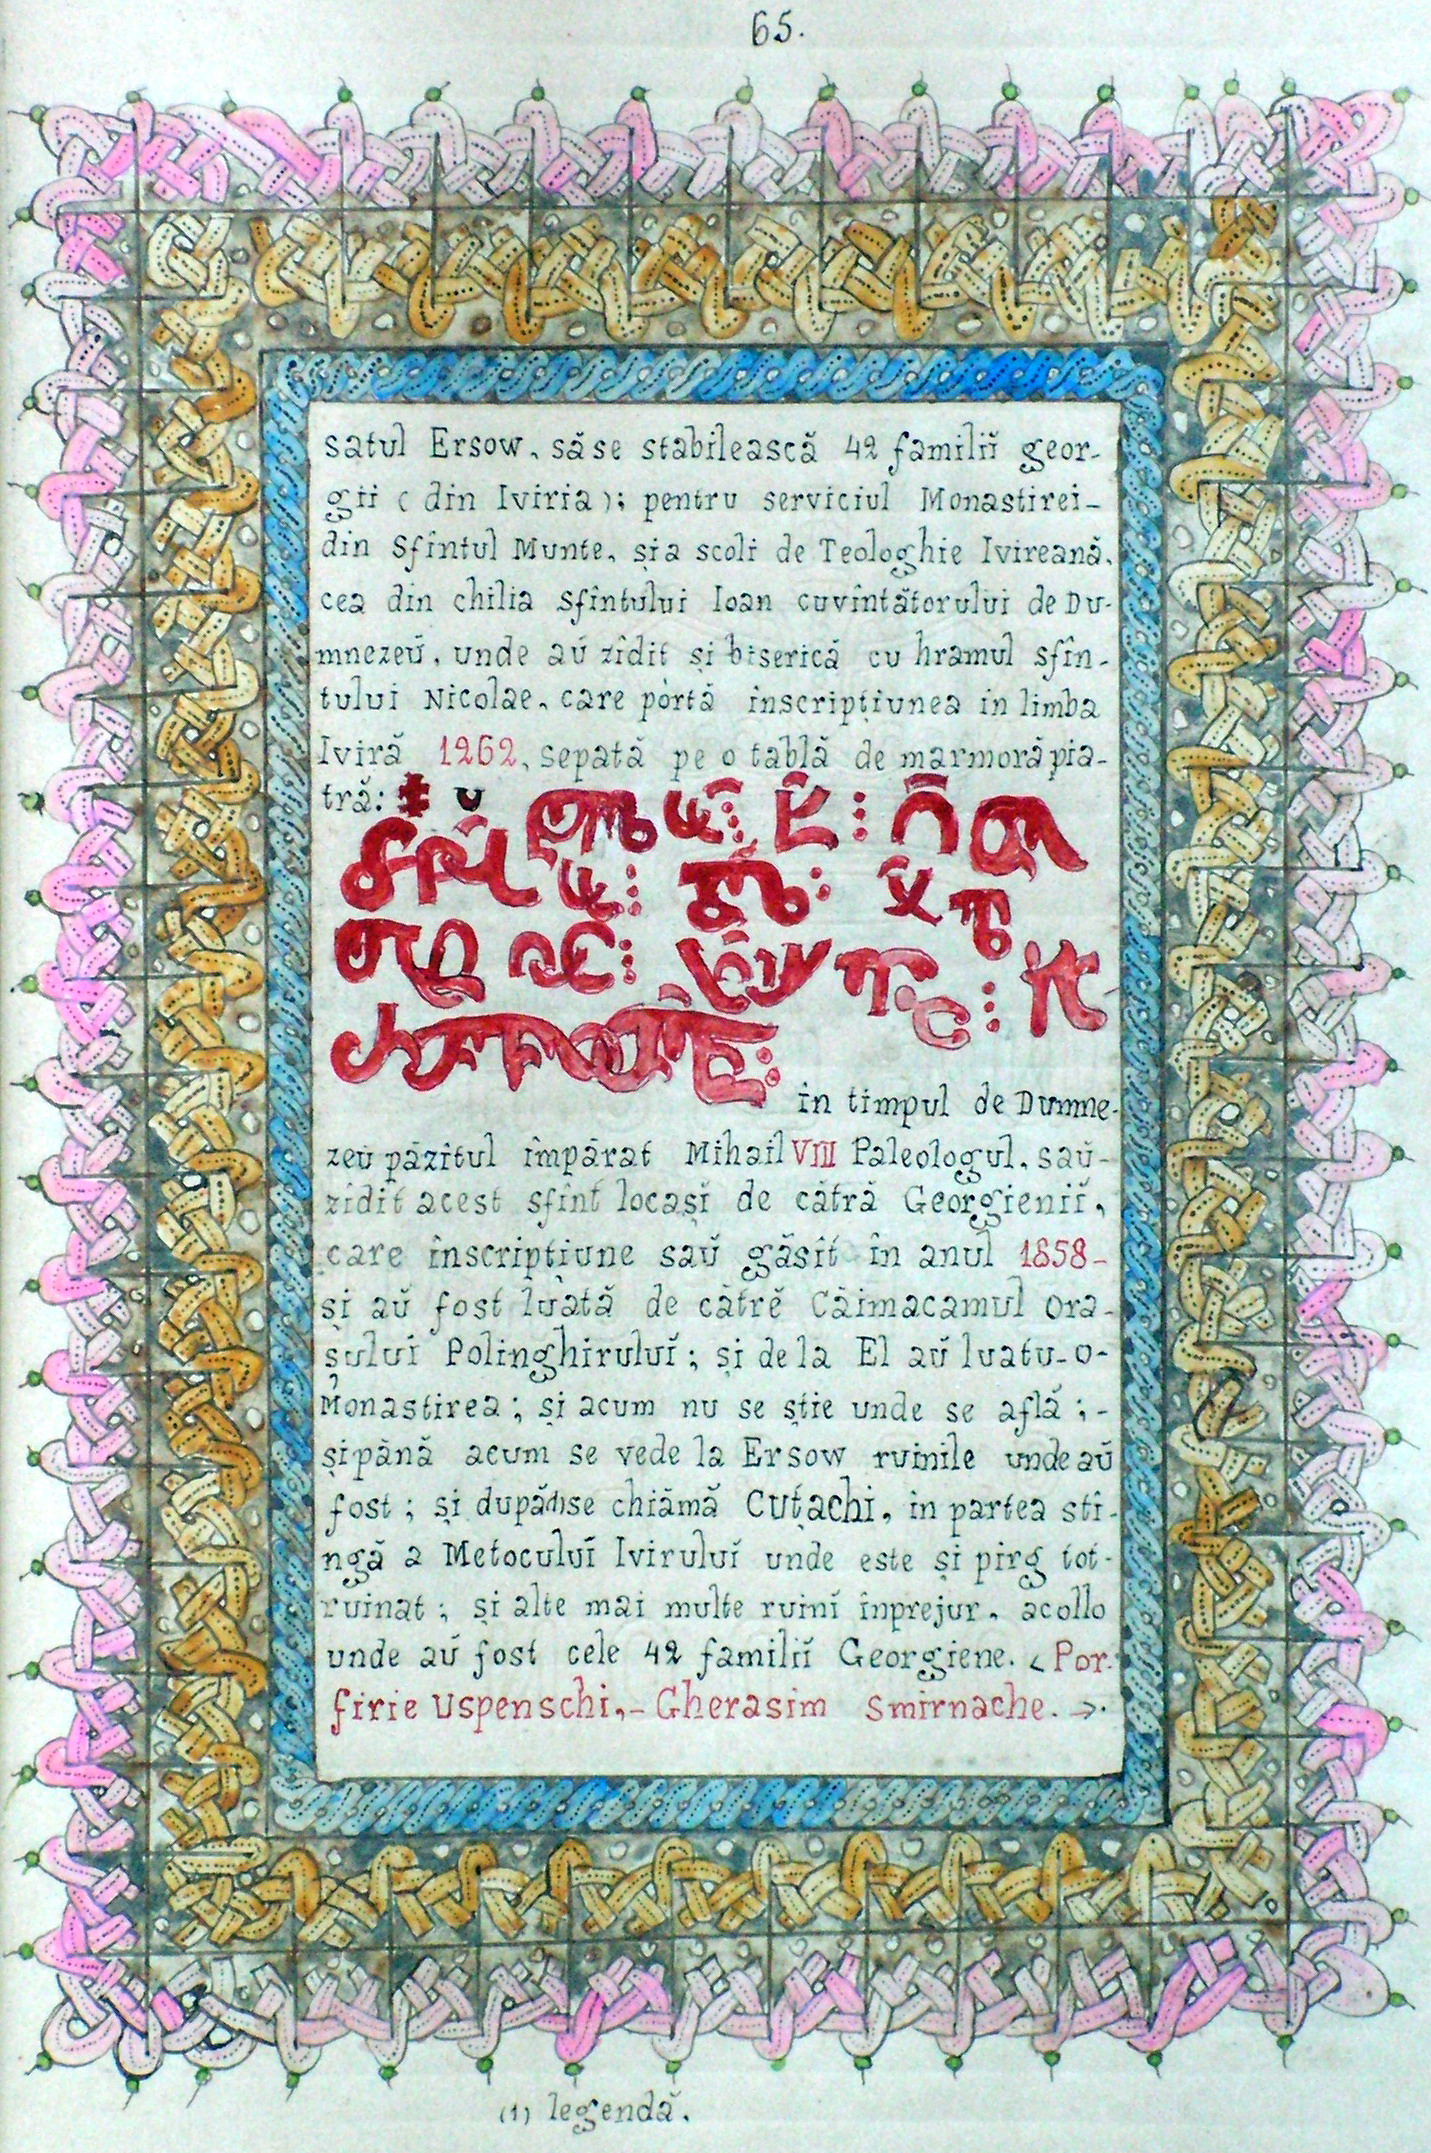 65.
satul Ersow, să se stabilească 42 familiĭ geor-
gii ( din Iviria ); pentru serviciul Monastirei-
din Sfîntul Munte, și a scoli de Teologhie Ivireană,
cea din chilia sfîntului Ioan cuvîntătorului de Du-
mnezeŭ, unde aŭ zidit și biserică cu hramul sfîn-
tului Nicolae, care pòrtă inscripțiunea in limba
Iviră 1262, sepată pe o tablă de marmoră pia-
tră:
in timpul de Dumne-
zeŭ păzitul împărat Mihail VIII Paleologul, saŭ-
zidit acest sfînt locași de cătră Georgieniĭ,
care înscripțiune saŭ găsit în anul 1858-
și aŭ fost luată de cătrĕ Căimacamul ora-
șului Polinghiruluĭ; și de la El aŭ luatu-o-
Monastirea; și acum nu se știe unde se află;-
și până acum se vede la Ersow ruinile unde aŭ
fost; și se chiămă Cutachi, in partea stî-
ngă a Metoculuĭ Iviruluĭ unde este și pirg tot-
ruinat; și alte mai multe ruinĭ înprejur, acollo
unde aŭ fost cele 42 familiĭ Georgiene. < Por-
firie Uspenschi,- Gherasim Smirnache. >.
(1) legendă.